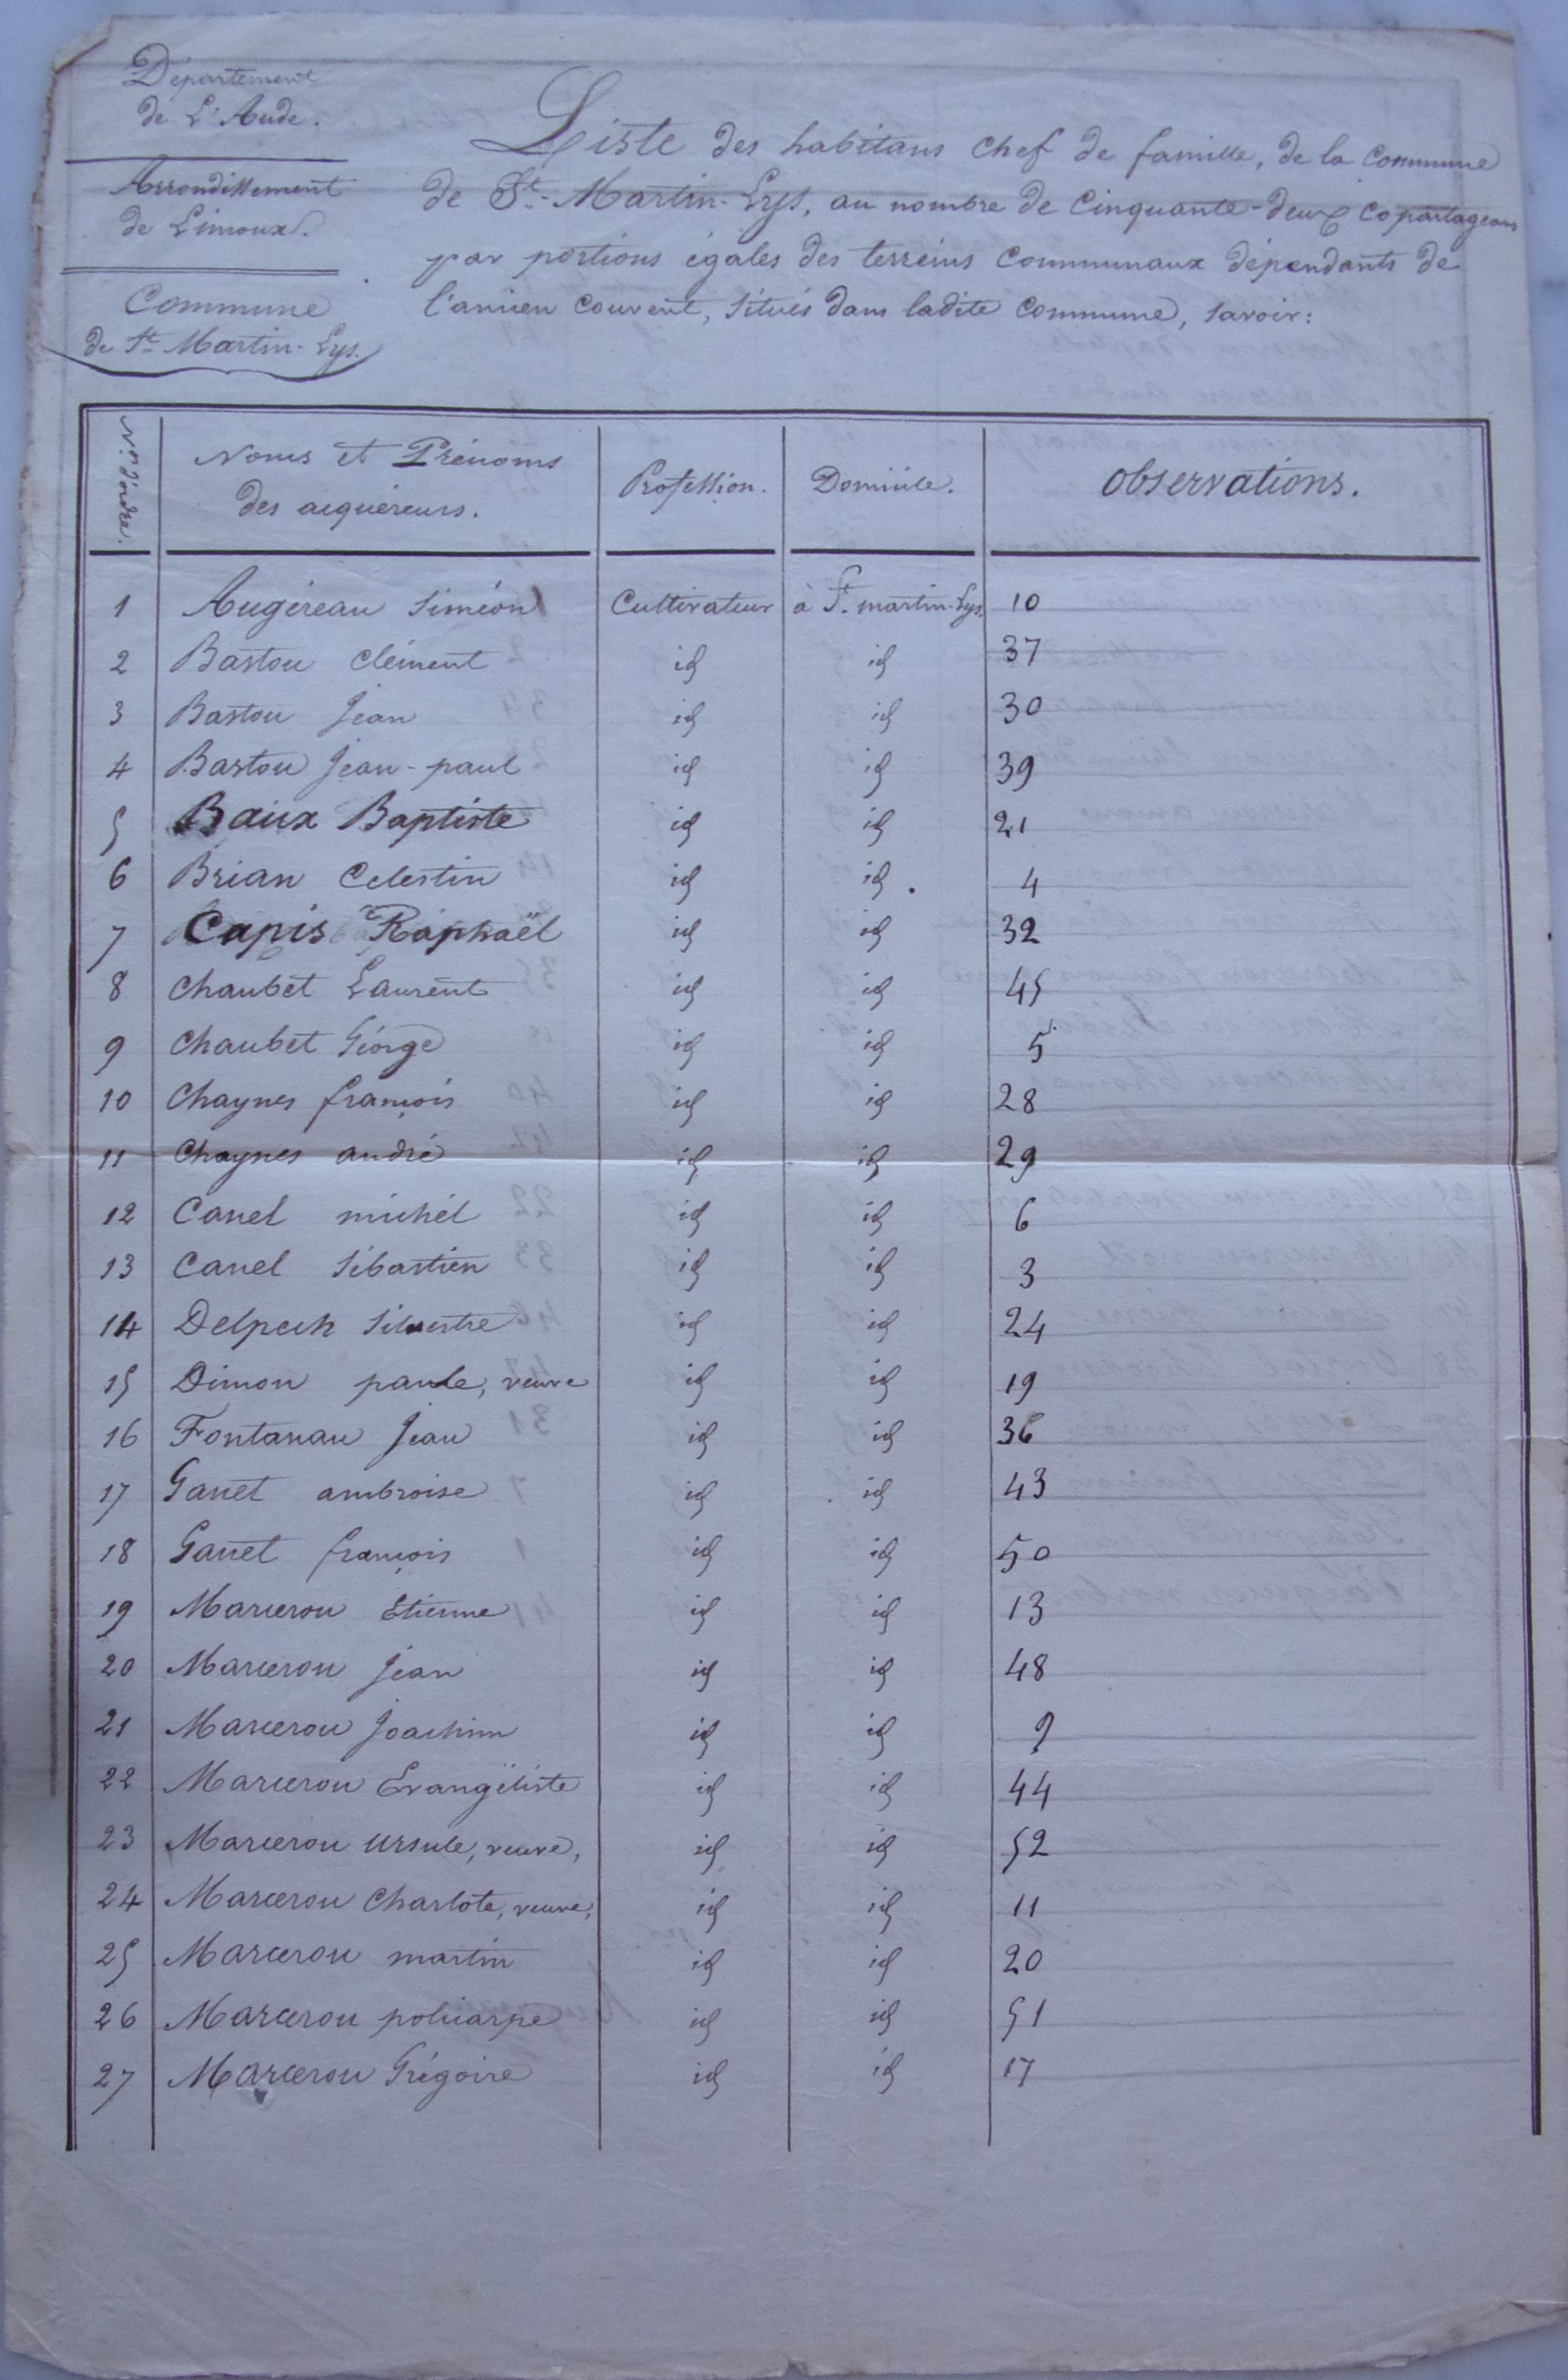 Département
de L'Aude.
Arrondissement
de Limoux.
Commune
de St Martin-Lys.
Liste des habitans chef de famille, de la commune
de St-Martin-Lys, au nombre de cinquante-deux copartageans
par portions égales des terreins communaux dépendants de
l'ancien couvent, situés dans ladite commune, savoir:
Nos d'ordre. Noms et Prénoms des acquéreurs. Profession. Domicile. Observations.
1 Augéreau Siméon Cultivateur à St. martin-Lys. 10
2 Bastou Clément id id 37
3 Bastou Jean id id 30
4 Bastou Jean-paul id id 39
5 Baux Baptiste id id 21
6 Brian Celestin id id. 4
7 Capis Raphaël id id 32
8 Chaubet Laurent id id 45
9 Chaubet Géorge id id 5
10 Chaynes françois id id 28
11 Chaynes andré id id 29
12 Canel michél id id 6
13 Canel Sébastien id id 3
14 Delpech Silvestre id id 24
15 Dimon paule, veuve id id 19
16 Fontanau Jean id id 36
17 Ganet ambroise id id 43
18 Ganet françois id id 50
19 Marcerou Etienne id id 13
20 Marcerou Jean id id 48
21 Marcerou Joachim id id 9
22 Marcerou Evangéliste id id 44
23 Marcerou Ursule, veuve, id id 52
24 Marcerou Charlote, veuve, id id 11
25 Marcerou martin id id 20
26 Marcerou policarpe id id 51
27 Marcerou Grégoire id id 17